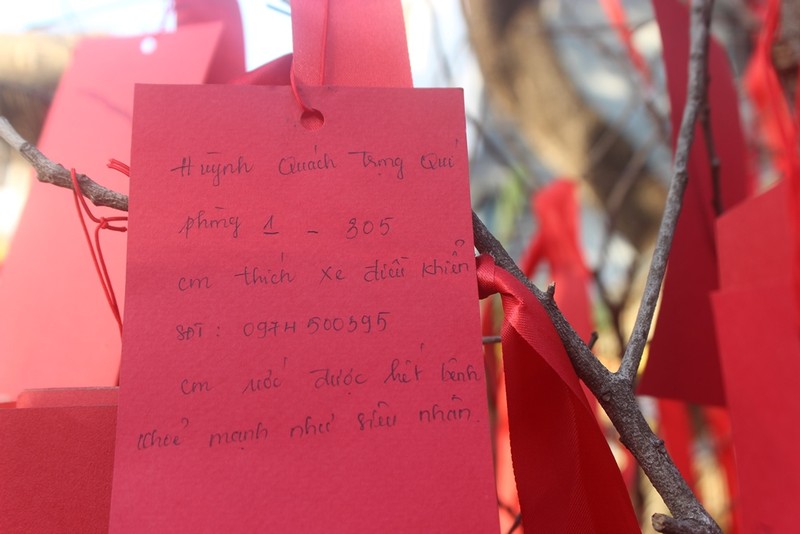 Huỳnh Quách Trọng Quí
phòng 1 - 305
em thích xe điều khiển
SĐT: 0974500395
em ước được hết bệnh
khoẻ mạnh như siêu nhân